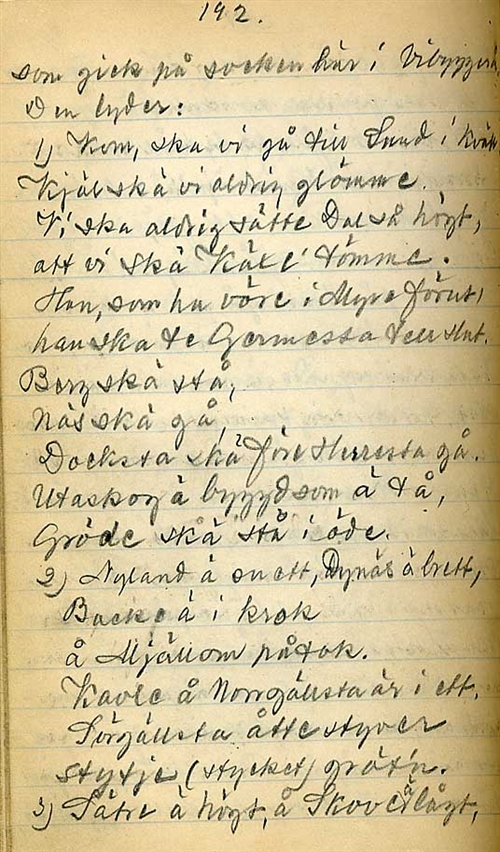 192.
som gick på socken här i Vibyggerå
Den lyder:
1) Kom, ska vi gå till Sund i kväll
Kjäl skä vi aldrig glömme.
Vi ska aldrig sätte Dal så högt,
att vi skä Käxe tömme.
Han, som ha vöre i Myre förut,
han ska te Germessta te slut.
Berg skä stå,
Näs skä gå,
Docksta skä före Herresta gå.
Utaskog ä byggd som ä tå,
Gröde skä stå i öde.
2) Nyland ä snett, Dynäs ä brett,
Backe ä i krok
å Mjällom på tok.
Kavle å Norrgällsta är i ett,
Sörgällsta åtte styver
stytje (stycket) gröt'n.
3) Sätre ä högt, å Skovel ä lågt,